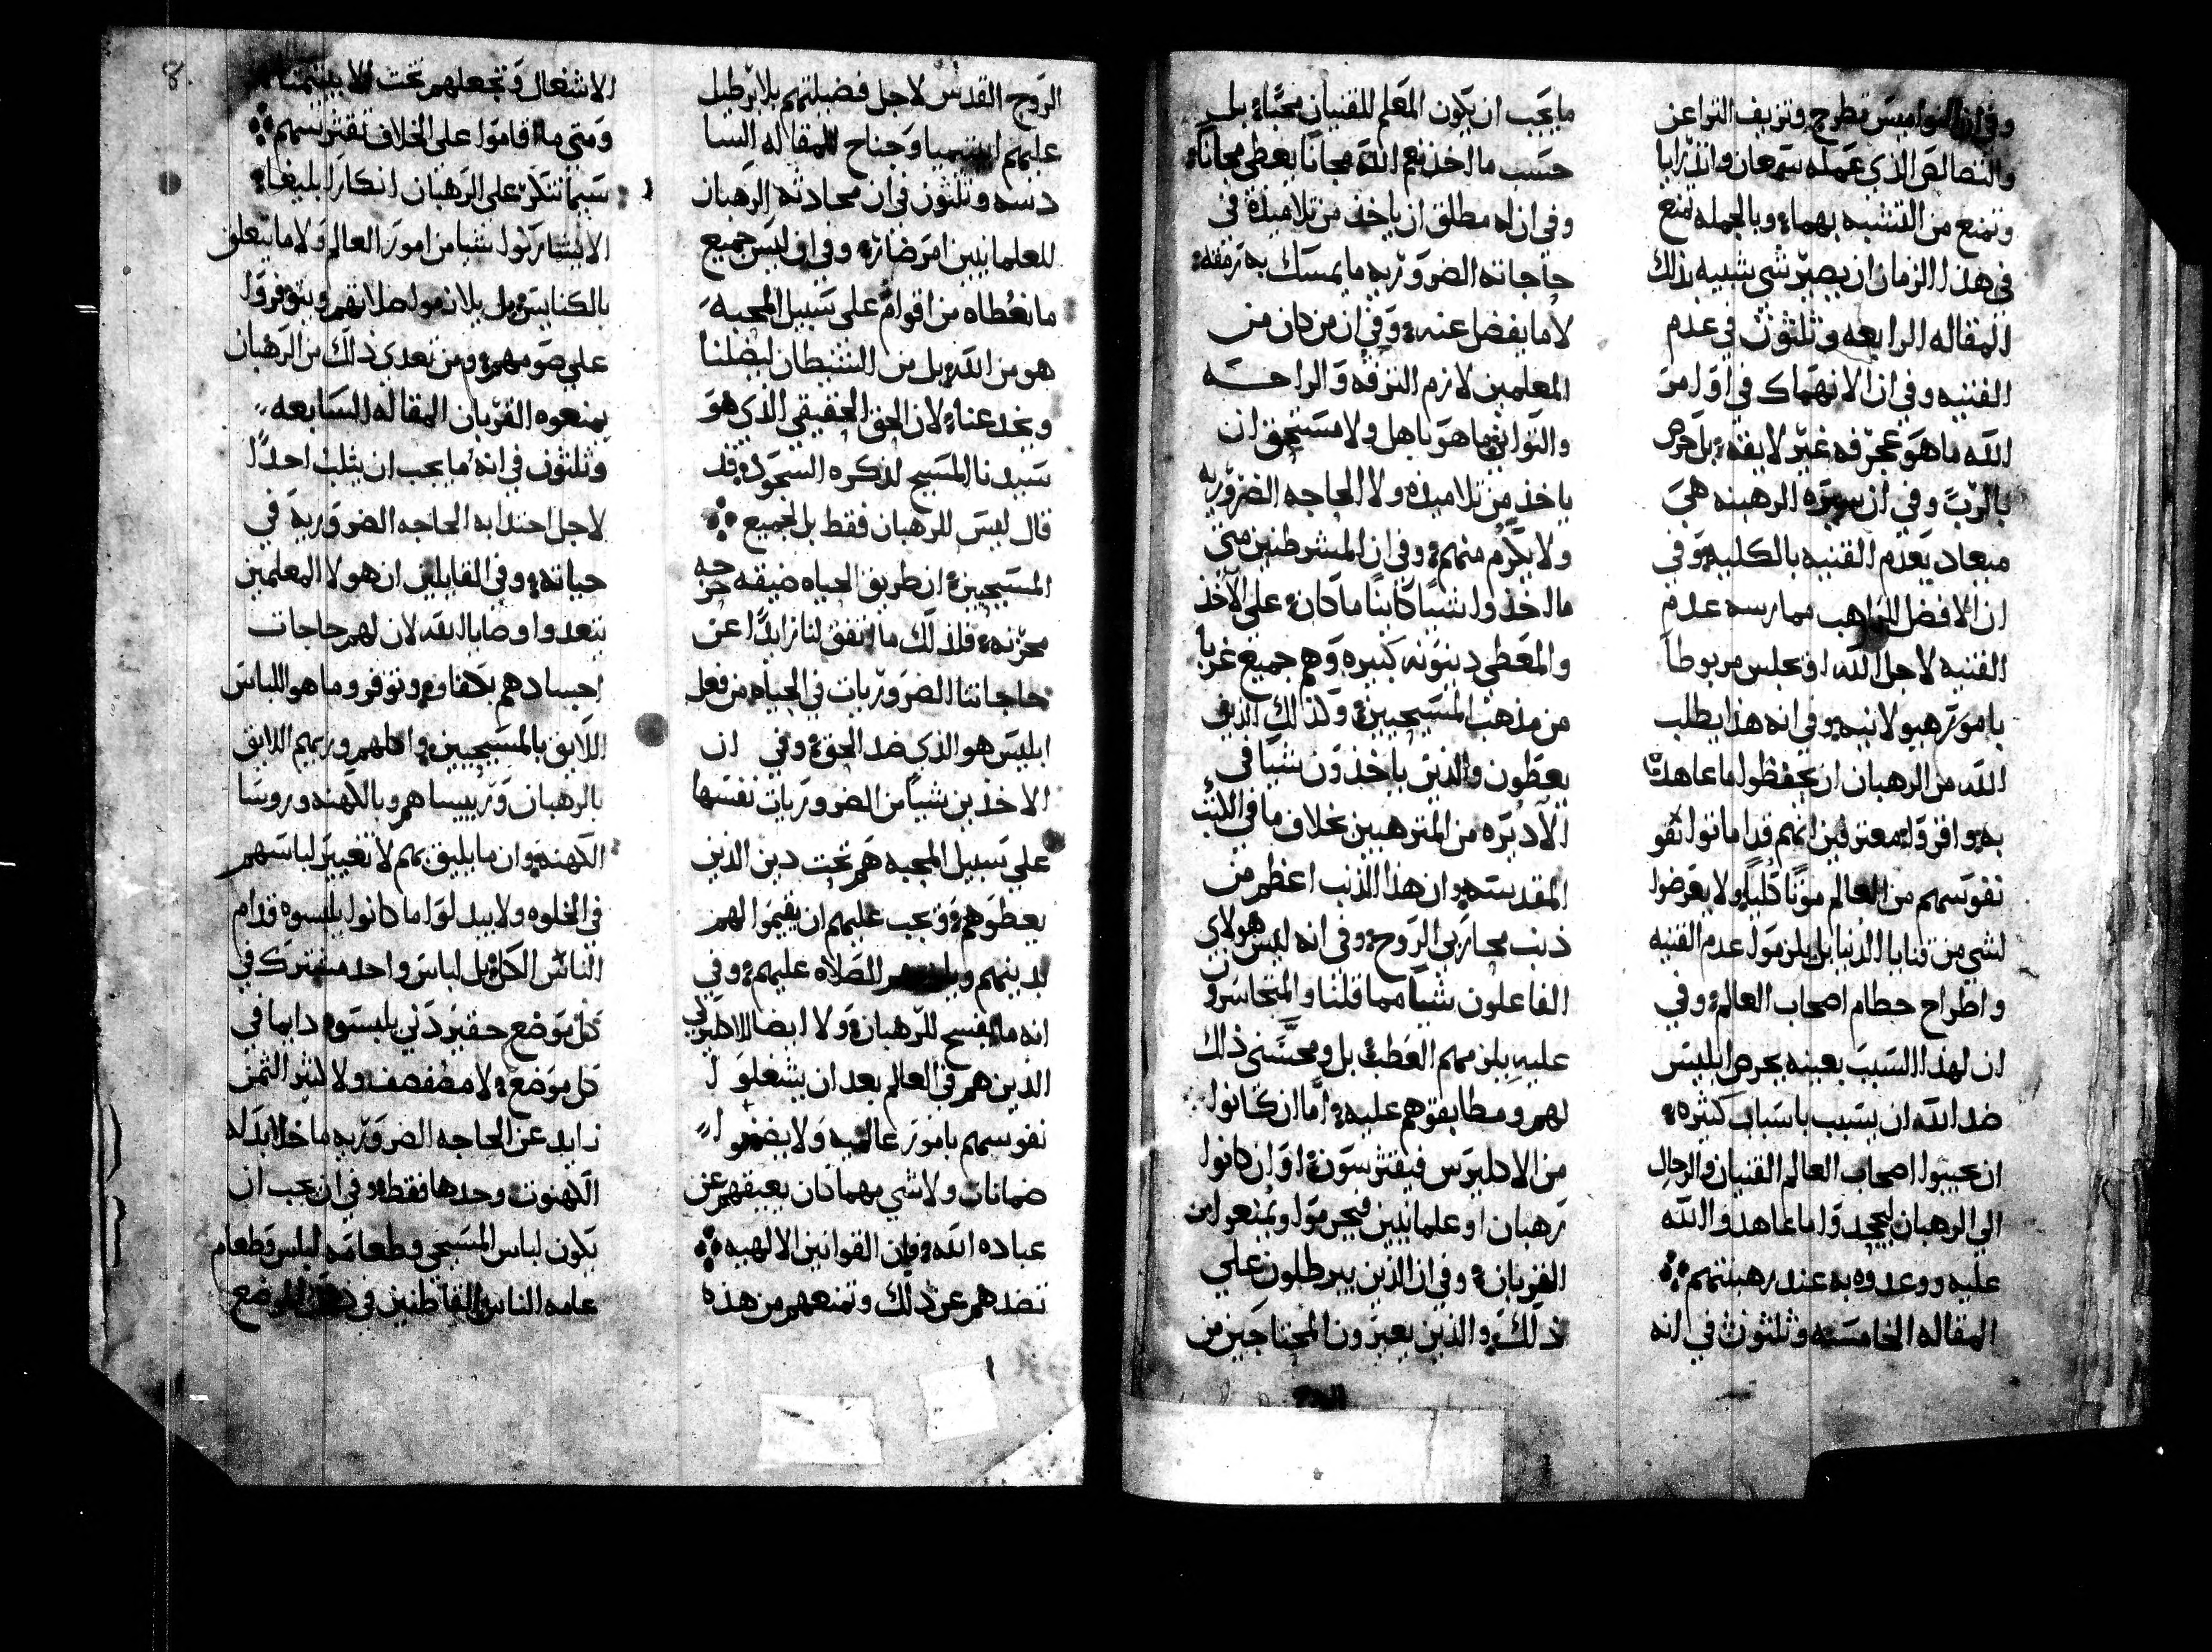 وفي ان النواميس تطرح وتزيف التراعن
والنصالص الذي عمله سمعان واندرايا
وتمنع من التشبه بهما وبالجمله تمنع
في هذا الزمان ان يصير شي شبيه بذلك
المقاله الرابعه وثلثون في عدم
القنيه وفي ان الانهماك في اوامر
الله ما هو عجرفه غير لايقه بل حرص
بالرب وفي ان سيره الرهبنه هي
ميعاد يعدم القنيه بالكليه وفي
ان الافضل للراهب ممارسه عدم
القنيه لاجل الله او يجلس مربوطا
بامور هيولانيه وفي انه هذا يطلب
الله من الرهبان ان يحفظوا ما عاهدوا
به واقروا معترفين انهم قد اماتوا
نفوسهم من العالم موتا كليا ولا يعرضوا
لشي من قنايا الدنيا بل يلزموا عدم القنيه
واطراح حطام اصحاب العالم وفي
ان لهذا السبب بعينه يحرص ابليس
ضد الله ان يسبب باسباب كثيره
ان يجيبوا اصحاب العالم القنيان والرجال
الي الرهبان ليجحدوا ما عاهدوا الله
عليه ووعدوه به عند رهبنتهم
المقاله الخامسه وثلثون في انه
ما يجب ان يكون المعلم للقنيان محبا بل
حسب ما اخذ نعم الله مجانا يعطي مجانا
وفي ان له مطلق ان ياخذ من تلاميذه في
حاجاته الضروريه ما يمسك به رمقه
لا ما يفضل عنه وفي ان من كان من
المعلمين لازم الترفه والراحه
والتواني ما هو باهل ولا مستحق ان
ياخذ من تلاميذه ولا الحاجه الضروريه
ولا يكرم منهم وفي ان المشرطنين متي
ما اخذوا شيا كاينا ما كان على الاخذ
والمعطي دينونه كبيره وهم جميع غربا
من مذهب المسيحيين وكذلك الذين
يعطون والذين ياخذون شيا في
الاديره من المترهبين بخلاف ما في الكتب
المقدسه وان هذا الذنب اعظم من
ذنب محاربي الروح وفي انه ليس هولاي
الفاعلون شيا مما قلنا والمتجاسرون
عليه يلزمهم العطب بل ومحسني ذلك
لهم ومطابقوهم عليه اما ان كانوا
من الاكليرس فيفترسون او ان كانوا
رهبان او علمانيين فيحرموا ويمنعوا من
القربان وفي ان الذين يبرطلون علي
ذلك والذين يعبرون المحتاجين من
الروح القدس لاجل فضيلتهم بلا برطيل
عليهم وجناح المقاله السا
دسه وثلثون في ان محادثه الرهبان
للعلمانيين امر ضار وفي ان ليس جميع
ما نعطاه من اقوام على سبيل المحبه
هو من الله بل من الشيطان ليضلنا
ويخدعنا لان الحق الحقيقي الذي هو
سيدنا المسيح لذكره السجود قد
قال ليس للرهبان فقط بل لجميع
المسيحيين ان طريق الحياه ضيقه
محزنه فلذلك ما اتفق لنا زايدا عن
حاجاتنا الضروريات في الحياه من فعل
ابليس هو الذي ضد الحق وفي ان
الاخذين شيا من الضروريات نفسها
على سبيل المحبه هم تحت دين الذين
يعطوهم ويجب عليهم ان يقيموا لهم
بدينهم الصلاه عليهم وفي
انه ما يفسح للرهبان ولا ايضا للاكليركي
الذين هم في العالم بعد ان يشغلوا
نفوسهم بامور عالميه ولا يضمنوا
ضمانات ولا شي مهما كان يعيقهم عن
عباده الله وان القوانين الالهيه
تضدهم عن ذلك وتمنعهم من هذه
الاشغال وتجعلهم تحت
ومتي ما اقاموا على الخلاف تقترسهم
سيما تنكر على الرهبان انكارا بليغا
الا يتشاركوا شيا من امور العالم ولا ما يتعلق
بالكنايس بل يلازموا صلاتهم ويتوفروا
على صومهم ومن تعدي ذلك من الرهبان
يمنعوه القربان المقاله السابعه
وثلثون في انه ما يجب ان يثلب احدا
لاجل اخذ ابه الحاجه الضروريه في
حياته وفي القايلين ان هولا المعلمين
يتعدوا وصايا الله لان لهم حاجات
اجسادهم بكفاف وتوفر وما هو اللباس
اللايق بالمسيحيين واكلهم وزيهم اللايق
بالرهبان وربيساهم وبالكهنه وروسا
الكهنه وان ما يليق بهم لا تغيير لباسهم
في الخلوه ولا يبدلوا ما كانوا يلبسوه قدام
الناس الكل بل لباس واحد مشترك في
كل موضع حقير دني يلبسوه دايما في
كل موضع لا مصفصف ولا كثير الثمن
زايد عن الحاجه الضروريه ما خلا بدله
الكهنوت وحدها فقط وفي ان يجب ان
يكون لباس المسيحي وطعامه لباس وطعام
عامه الناس القاطنين في ذلك الموضع